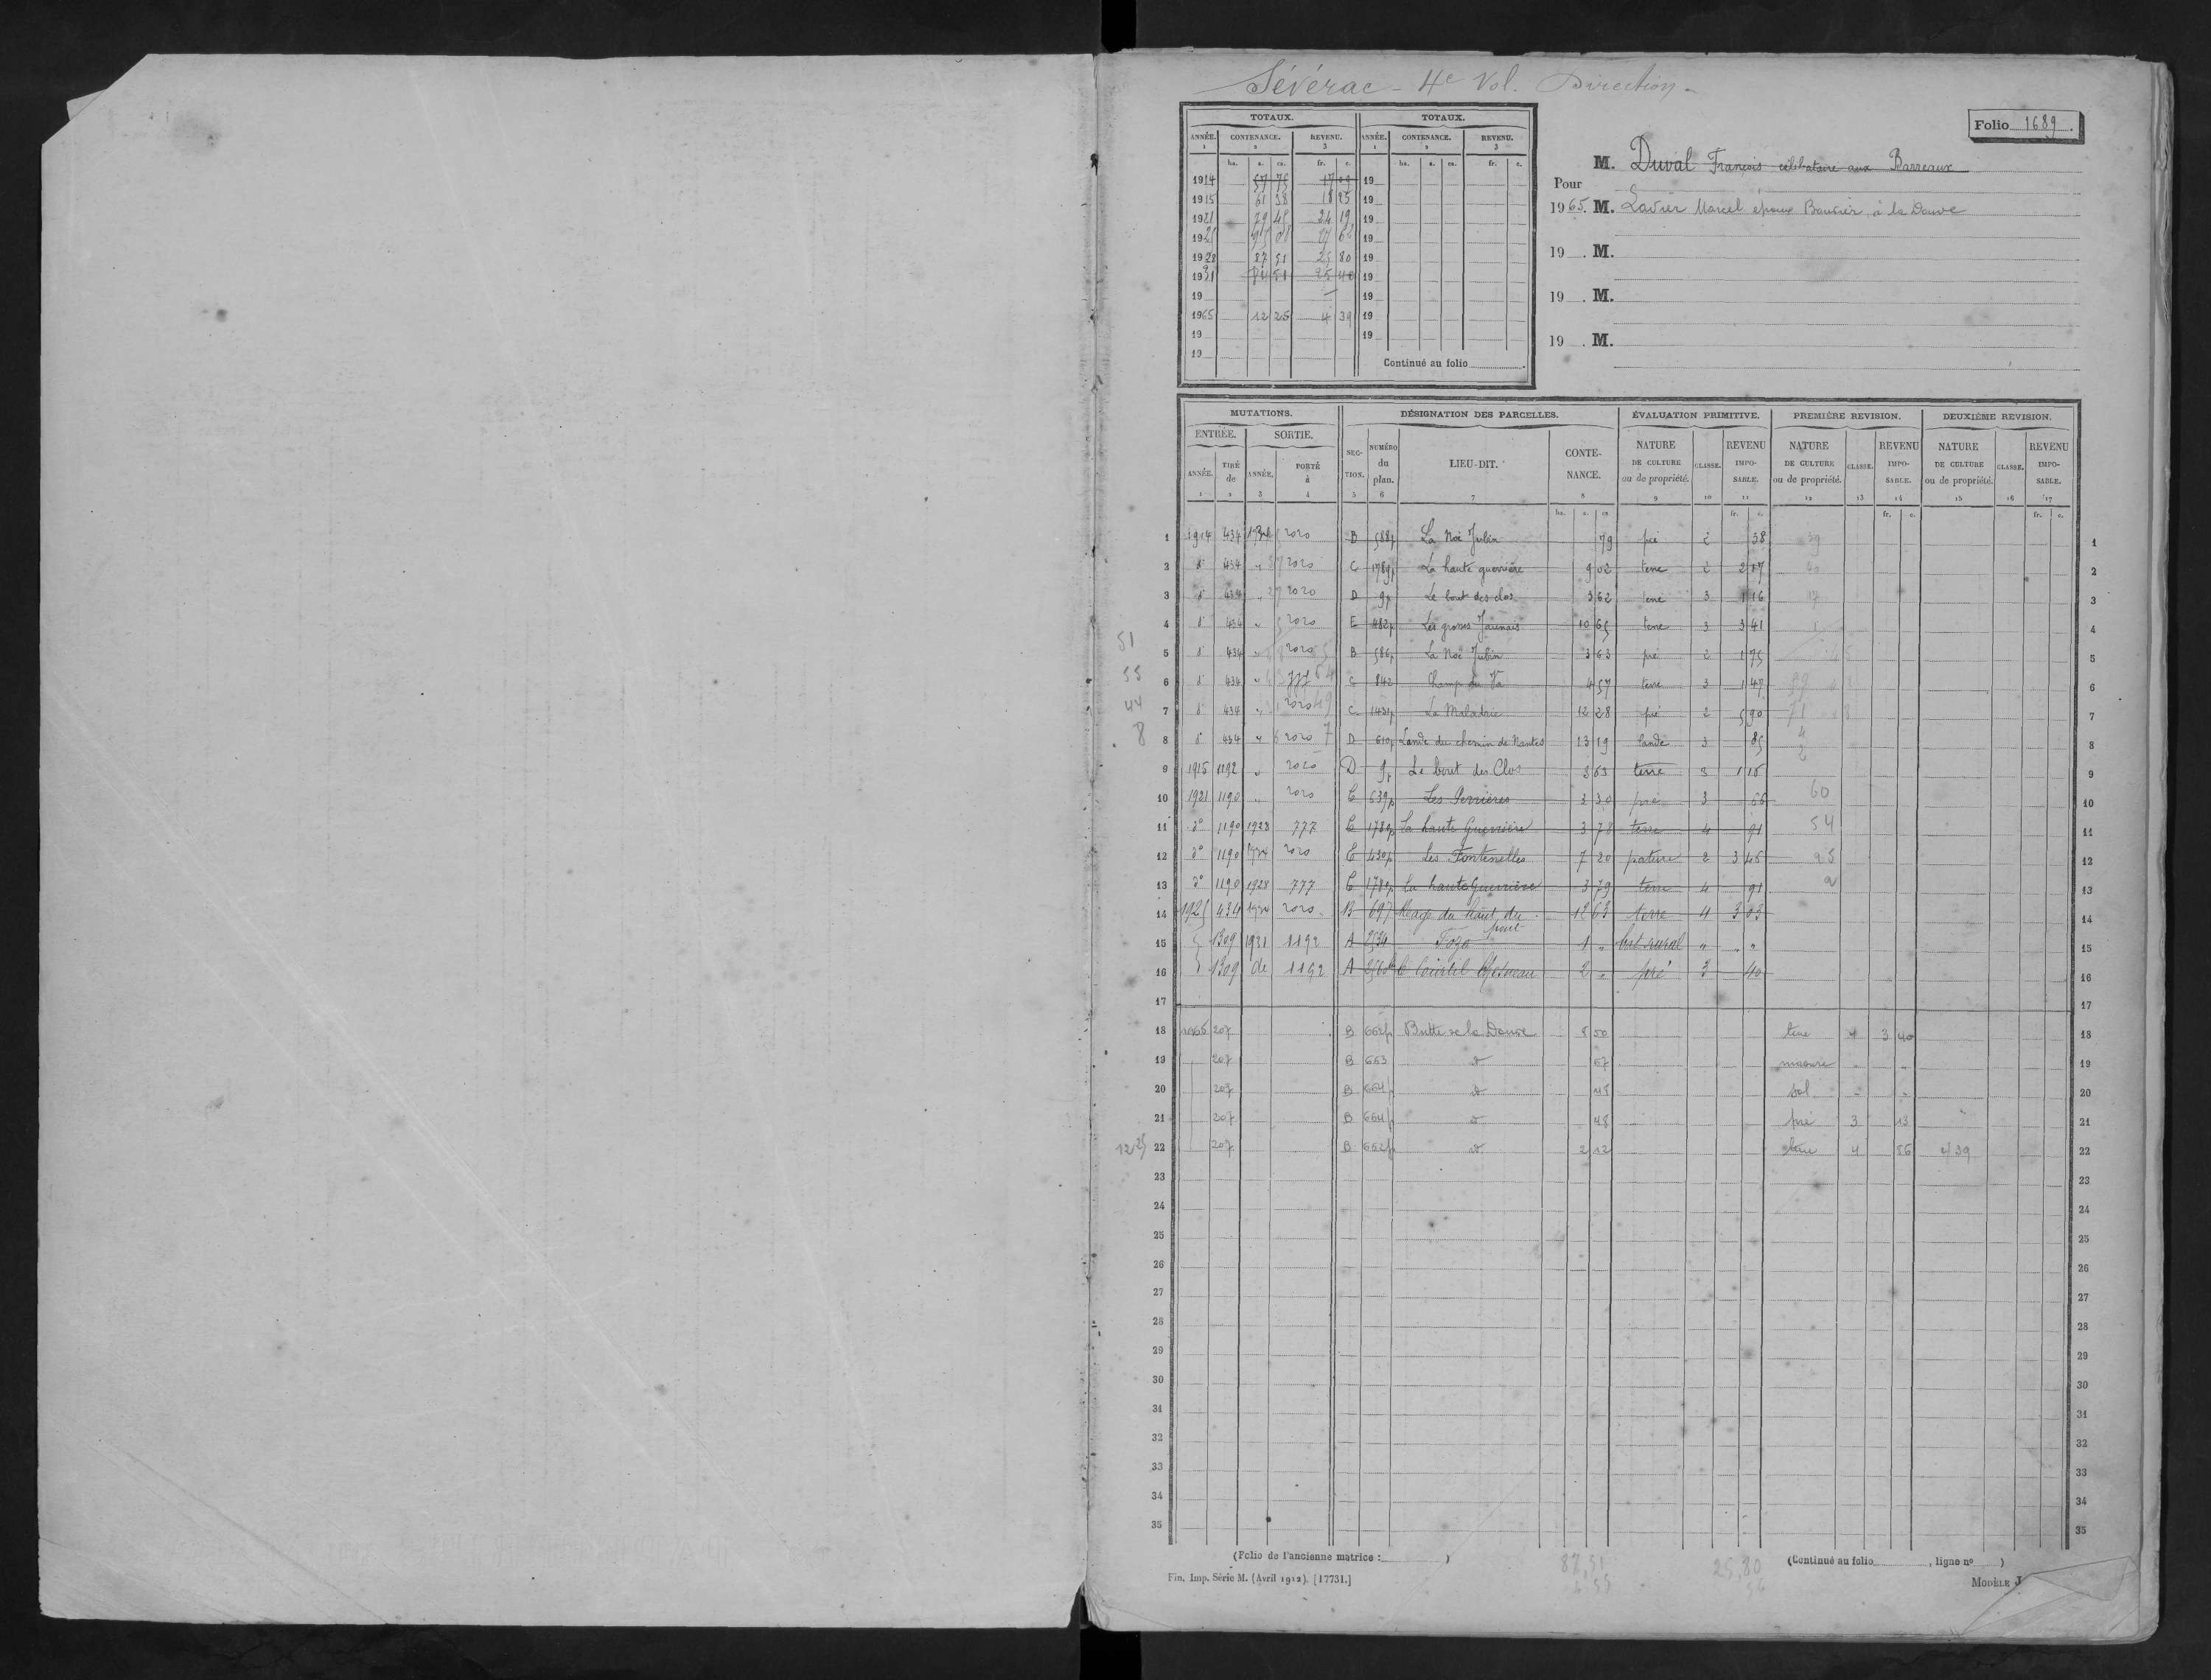 Sévérac - 4e Vol. Direction -
Folio 1689.
TOTAUX. TOTAUX.
ANNÉE. CONTENANCE. REVENU. ANNÉE. CONTENANCE. REVENU.
1 2 3 1 2 3
ha. a. ca. fr. c. ha. a. ca. fr. c.
1914 57 75 17 09 19
1915 61 38 18 25 19
1921 79 45 24 19 19
1925 95 08 27 62 19
1928 87 51 25 80 19
1931 84 51 25 40 19
19 19
1965 12 25 4 39 19
19 19
19
Continué au folio
M. Duval François célibataire aux Barreaux
Pour
1965. M. Lavier Marcel époux Bauvrier à la Douve
19 . M.
19 . M.
19 . M.
MUTATIONS. DÉSIGNATION DES PARCELLES. ÉVALUATION PRIMITIVE. PREMIÈRE REVISION. DEUXIÈME REVISION.
ENTRÉE. SORTIE.
ANNÉE. TIRÉ de ANNÉE. PORTÉ à SECTION. NUMÉRO du plan. LIEU-DIT. CONTENANCE. NATURE DE CULTURE ou de propriété. CLASSE. REVENU IMPOSABLE. NATURE DE CULTURE ou de propriété. CLASSE. REVENU IMPOSABLE. NATURE DE CULTURE ou de propriété. CLASSE. REVENU IMPOSABLE.
1 2 3 4 5 6 7 8 9 10 11 12 13 14 15 16 17
ha. a. ca. fr. c. fr. c. fr. c.
1 1914 434 1934 2020 B 588p La Noë Jubin 79 pré 2 38 39 1
2 do 434 " 2020 C 1789p La haute guerrière 9 02 terre 2 2 07 40 2
3 do 434 " 2020 D 9p Le bout des clos 3 62 terre 3 1 16 17 3
4 do 434 " 2020 E 482p Les grosses Jaunais 10 65 terre 3 3 41 4
5 do 434 " 2020 B 586p La Noë Jubin 3 63 pré 2 1 75 5
6 do 434 " 777 C 842 Champ du Va 4 57 terre 3 1 47 6
7 do 434 " 2020 C 1431p La Maladrie 12 28 pré 2 5 90 71 7
8 do 434 " 2020 D 610p Lande du chemin de Nantes 13 19 lande 3 85 8
9 1915 1192 " 2020 D 9p Le bout des Clos 3 63 terre 3 1 16 9
10 1921 1190 " 2020 C 639p Les Perrières 3 30 pré 3 66 60 10
11 do 1190 1928 777 C 1789p La haute Guerrière 3 78 terre 4 91 54 11
12 do 1190 1934 2020 C 430p Les Fontenelles 7 20 pature 2 3 45 25 12
13 do 1190 1928 777 C 1789p La haute Guerrière 3 79 terre 4 91 2 13
14 1925 434 1934 2020 B 697 Réage du haut du pont 12 63 terre 4 3 03 14
15 1309 1931 1192 A 2534 Fozo 1 " bat rural " " " 15
16 1309 do 1192 A Le Courtil 2 " pré 3 40 16
17 17
18 1965 207 B 662p Butte de la Douve 8 50 terre 4 3 40 18
19 207 B 663 do 67 masure " " 19
20 207 B 664p do 48 sol - - 20
21 207 B 664p do 48 pré 3 13 21
12 25 22 207 B 662p do 2 12 terre 4 86 4/39 22
23 23
24 24
25 25
26 26
27 27
28 28
29 29
30 30
31 31
32 32
33 33
34 34
35 35
51
55
44
8
(Folio de l'ancienne matrice : ) 87,51 25,80 (Continué au folio , ligne no )
Fin. Imp. Série M. (Avril 1912). [17731.] MODÈLE J